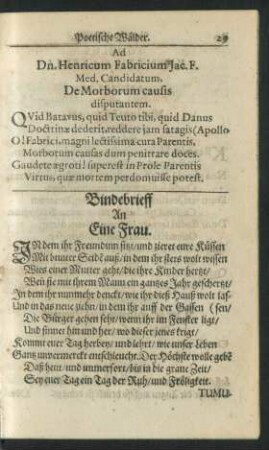 Poetische Wälder. 29
Ad
Dn. Henricum Fabricium Jac. F.
Med. Candidatum.
De Morborum causis
disputantem.
QVid Batavus, quid Teuto tibi, quid Danus
Doctrinæ dederit, reddere jam satagis (Apollo
O! Fabrici, magni lectissima cura Parentis,
Morbotum causas dum penitrare doces.
Gaudete ægroti! superest in Prole Parentis
Virtus, quæ mortem perdomuisse potest.
Bindebrieff
An
Eine Frau.
INdem ihr Freundinn sitzt/ und zieret eure Küssen
Mit bunter Seid' auß/ in dem ihr stets wolt wissen
Wies einer Mutter geht/ die ihre Kinder hertzt/
Wen sie mit ihrem Mann ein gantzes Jahr geschertzt/
In dem ihr nunmehr denckt/ wie ihr dieß Hauß wolt las-
Und in das neue ziehn/ in dem ihr auff der Gassen (sen/
Die Bürger gehen seht/ wenn ihr im Fenster ligt/
Und sinnet hin und her/ wo dieser jenes krigt/
Kommt euer Tag herbey/ und lehrt/ wie unser Leben
Gantz unvermerckt entschleucht. Der Höchste wolle gebē
Daß heut/ und immerfort/ bis in die graue Zeit/
Sey euer Tag ein Tag der Ruh/ und Fröligkeit.
TUMU-